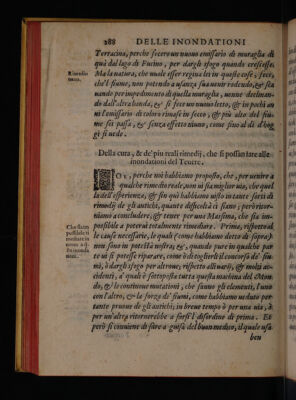 288 DELLE INONDATIONI
Terracina, perche fecero un nuouo emissario de muraglia di
quà dal lago di Fucino, per dargli sfogo quando crescesse.
Ma la natura, che vuole esser regina lei in queste cose, fece,
che'l fiume, non potendo a usanza sua uenir rodendo, & sca
uando per impedimento di quella muraglia, uenne declinan
do dall'altra banda, & si fece un nuouo letto, & in pochi an
ni l'emissario di coloro rimase in secco, & più alto del fiu-
me sei passa, & senza effetto niuno, come sino al dì d'hog
gi si uede.
Della cura, & de' piu reali rimedij, che si possan fare alle
inondationi del Teuere.
OR, perche noi habbiamo proposto, che, per uenire a
qualche rimedio reale, non ui sia miglior uia, che quel
la dell'esperienza, & sin quì habbiamo uisto in tante sorti di
rimedij de gli antichi, quante difficoltà ci siano, però uenia-
niamo a concludere, & tener per una Massima, che sia im-
possibile a poterui totalmente rimediare. Prima, rispetto al
le cause necessarie, le quali (come habbiamo detto di sopra)
non sono in potestà nostra, &, quando pure in qualche par
te ui si potesse riparare, come è di togliersi il concorso de' fiu
mi, ò dargli sfogo per altroue; rispetto alli uarij, & molti ac
cidenti, a' quali è sottoposta tutta questa machina del Mon
do, & le continoue mutationi, che fanno gli elementi, l'uno
con l'altro, & la forza de' fiumi, come habbiamo ueduto per
tante pruoue de gli antichi; in breue tempo ò per una uia, ò
per un'altra ritornerebbe a farsi'l disordine di prima. Et
però si conuiene di fare a guisa del buon medico, il quale usa
ben
Che siam
possibile il
rimediare in
tutto a que
ste inonda
tioni.